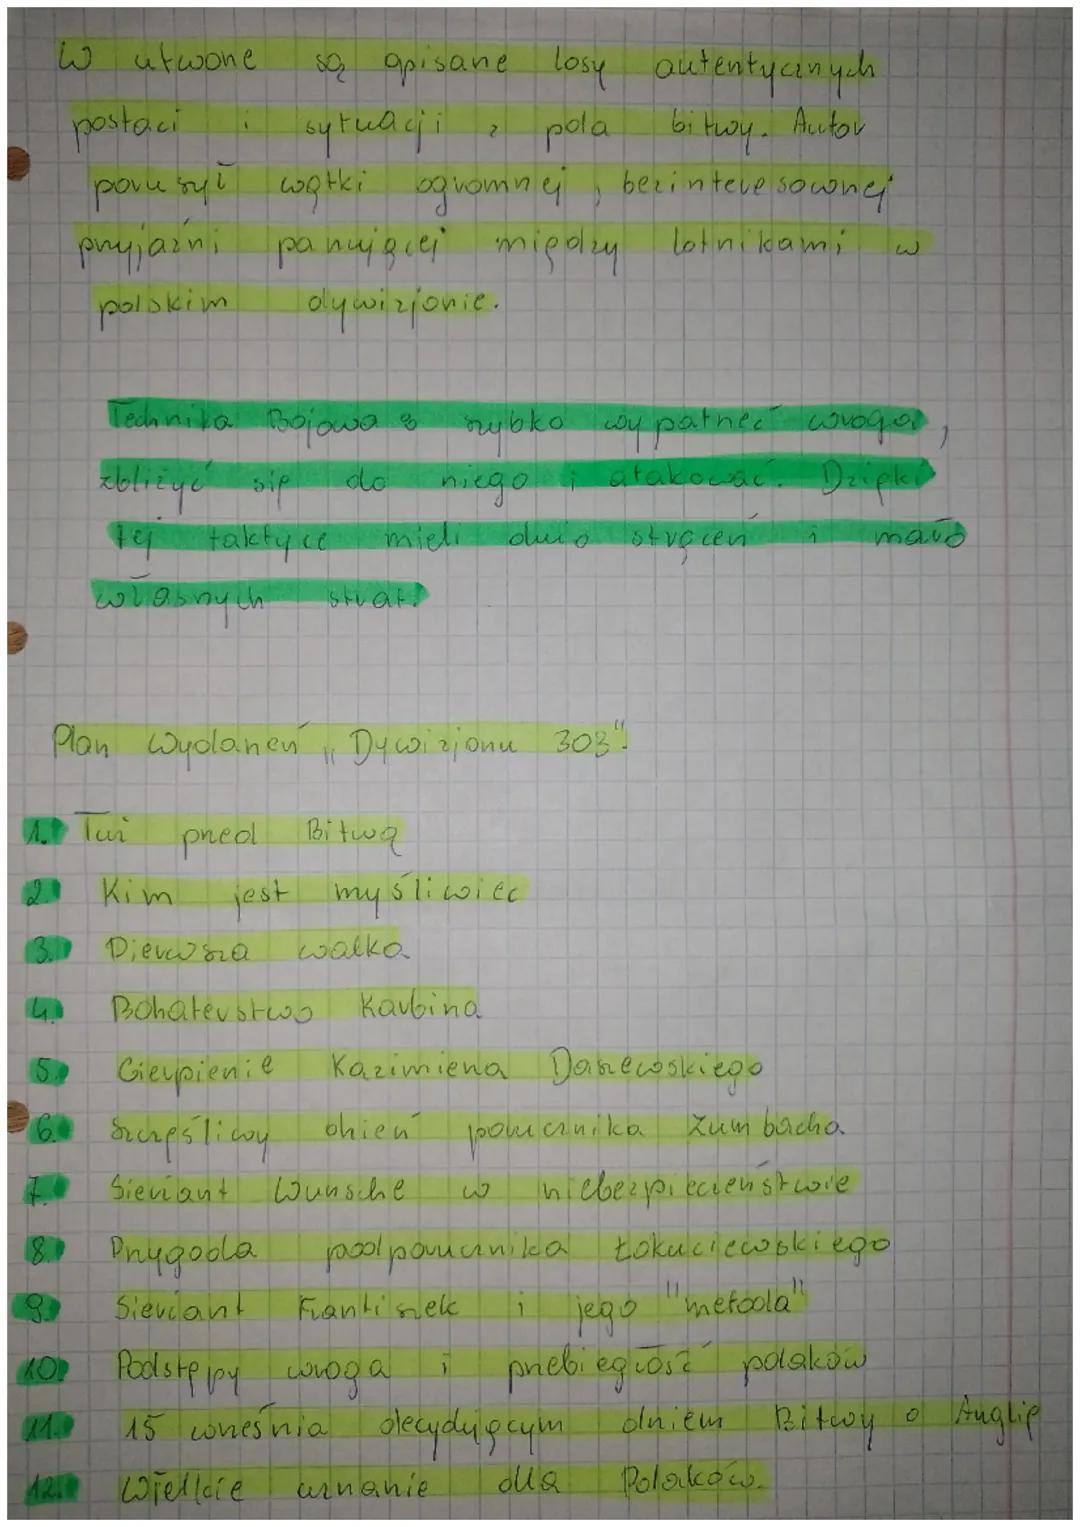 W utworze są opisane losy autentycznych
postaci i sytuacji z pola bitwy. Autor
poruszył wątki ogromnej, bezinteresownej
przyjaźni panującej między lotnikami w
polskim dywizjonie.
Technika Bojowa : szybko wypatrzeć wroga,
zbliżyć się do niego i atakować. Dzięki
tej taktyce mieli dużo strąceń i mało
własnych strat.
Plan Wydarzeń "Dywizjonu 303".
1. Tuż przed Bitwą
2. Kim jest myśliwiec
3. Pierwsza walka
4. Bohaterstwo Karbina
5. Cierpienie Kazimierza Daszewskiego
6. Szczęśliwy dzień porucznika Zumbacha
7. Sierżant Wunsche w niebezpieczeństwie
8. Przygoda podporucznika Łokuciewskiego
9. Sierżant Frantiszek i jego "metoda"
10. Podstępy wroga i przebiegłość polaków
11. 15 września decydującym dniem Bitwy o Anglię
12. Wielkie uznanie dla Polaków.